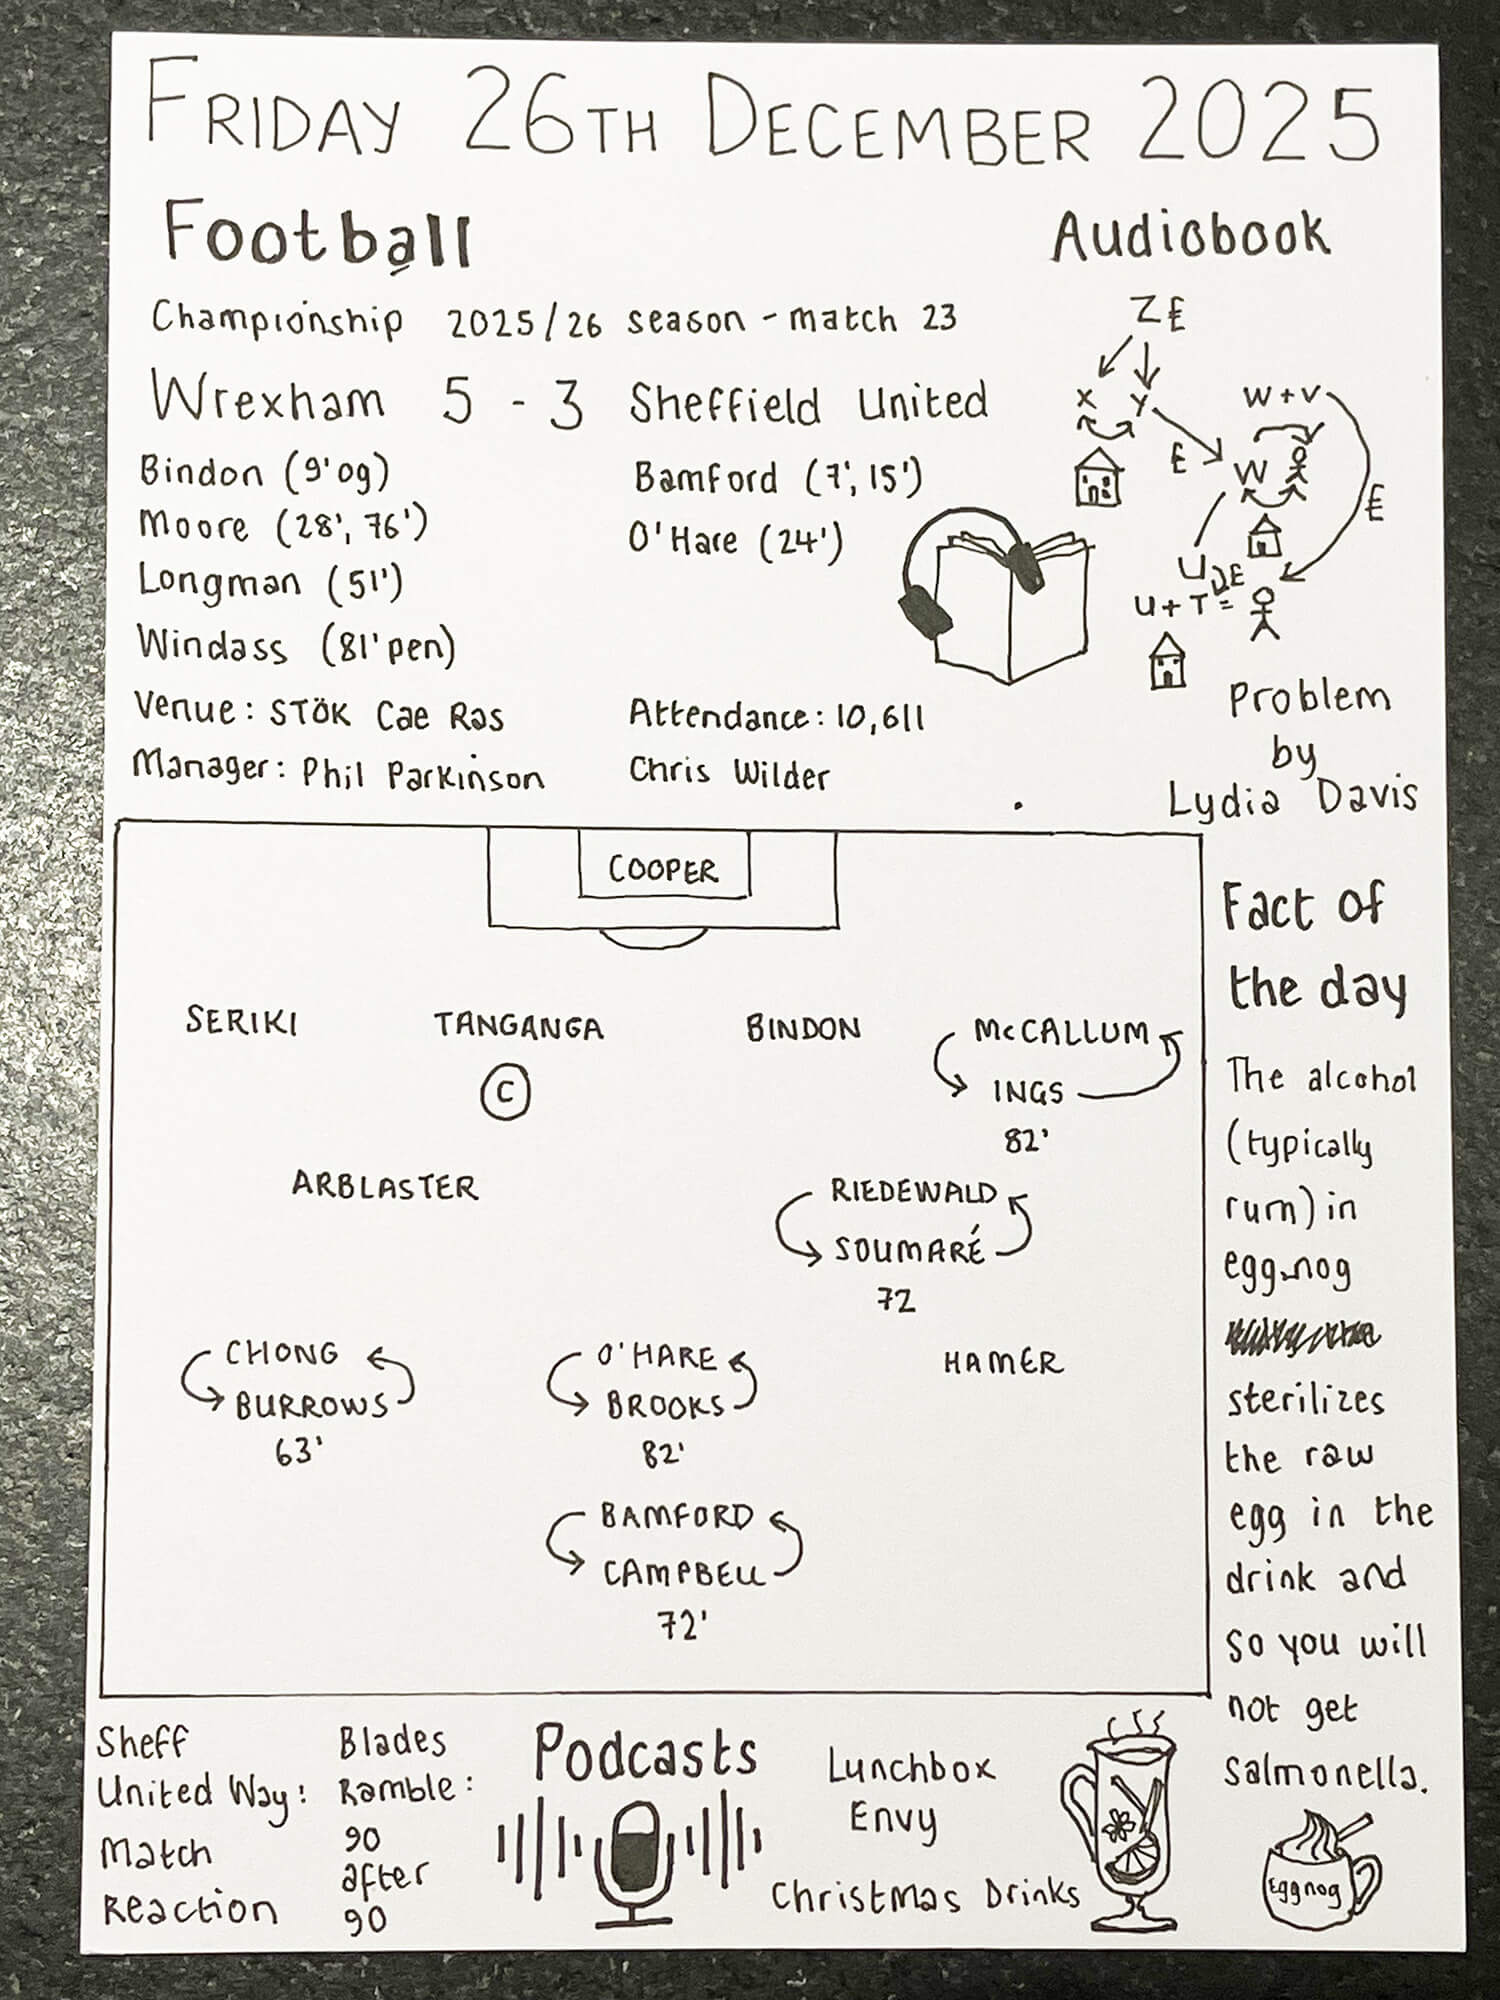 FRIDAY 26TH DECEMBER 2025
Football
Championship 2025/26 season - match 23
Wrexham 5 - 3 Sheffield United
Bindon (9' og)
Moore (28', 76')
Longman (51')
Windass (81' pen)
Bamford (7', 15')
O'Hare (24')
Venue: STÖK Cae Ras
Attendance: 10,611
Manager: Phil Parkinson
Chris Wilder
Audiobook
Z £
X Y
W + V
£
W
£
U £
U + T =
Problem
by
Lydia Davis
COOPER
SERIKI TANGANGA BINDON McCALLUM
C
INGS
82'
ARBLASTER
RIEDEWALD
SOUMARÉ
72
CHONG
BURROWS
63'
O'HARE
BROOKS
82'
HAMER
BAMFORD
CAMPBELL
72'
Fact of
the day
The alcohol
(typically
rum) in
eggnog
sterilizes
the raw
egg in the
drink and
so you will
not get
salmonella.
Eggnog
Sheff
United Way:
Match
Reaction
Blades
Ramble:
90
after
90
Podcasts
Lunchbox
Envy
Christmas Drinks